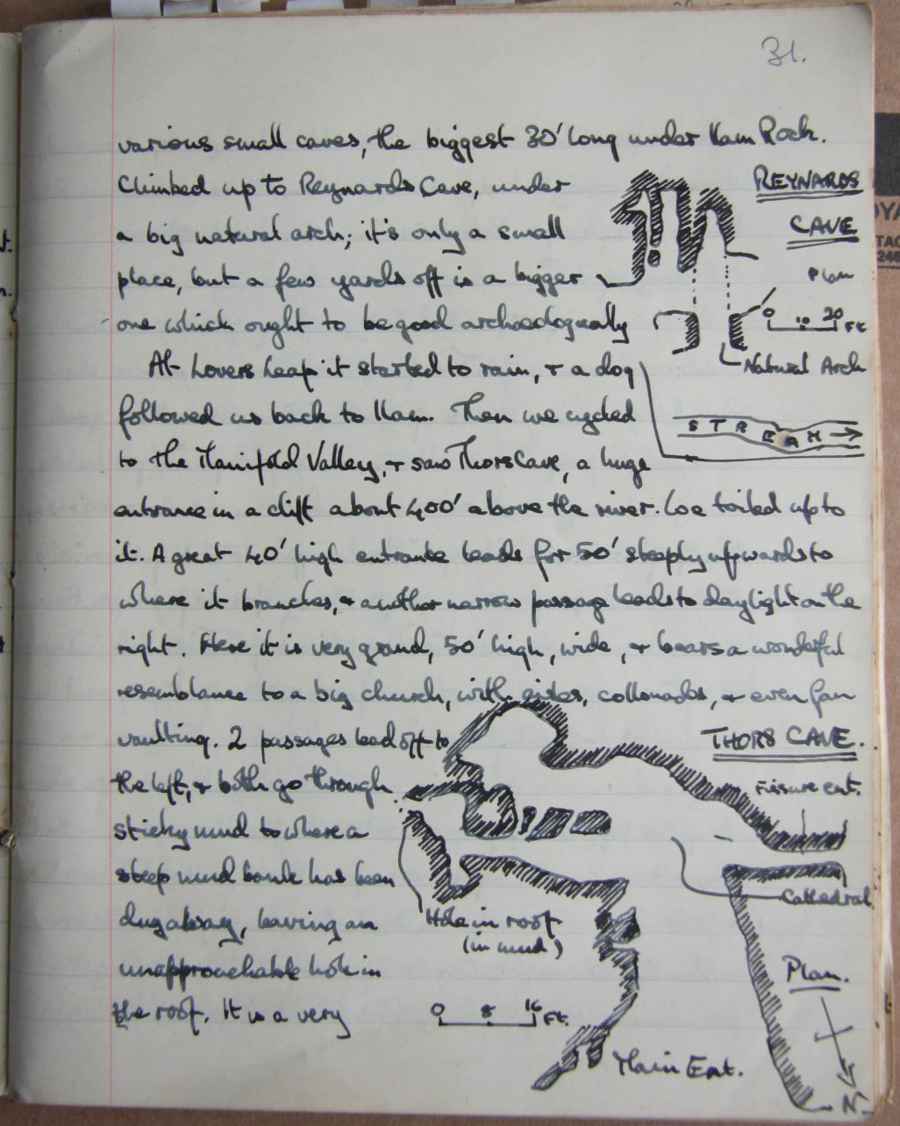 31.
various small caves, the biggest 30' long under Ilam Rock.
Climbed up to Reynards Cave, under
a big natural arch; it's only a small
place, but a few yards off is a bigger
one which ought to be good archaeologually
At Lovers Leap it started to rain, & a dog
followed us back to Ilam. Then we cycled
to the Manifold Valley, & saw Thors Cave, a huge
entrance in a cliff about 400' above the river. We toiled up to
it. A great 40' high entrance leads for 50' steeply upwards to
where it branches, & another narrow passage leads to daylight on the
right. Here it is very grand, 50' high, wide, & bears a wonderful
resemblance to a big church, with aisles, collonades, & even fan
vaulting. 2 passages lead off to
the left, & both go through
sticky mud to where a
steep mud bank has been
dug away, leaving an
unapproachable hole in
the roof. It is a very
REYNARDS
CAVE
Plan
0 10 20 Ft
Natural Arch
STREAM
THORS CAVE.
Fissure ent.
Cathedral
Hole in roof
(in mud)
Plan.
0 8 16 Ft.
Main Ent.
N